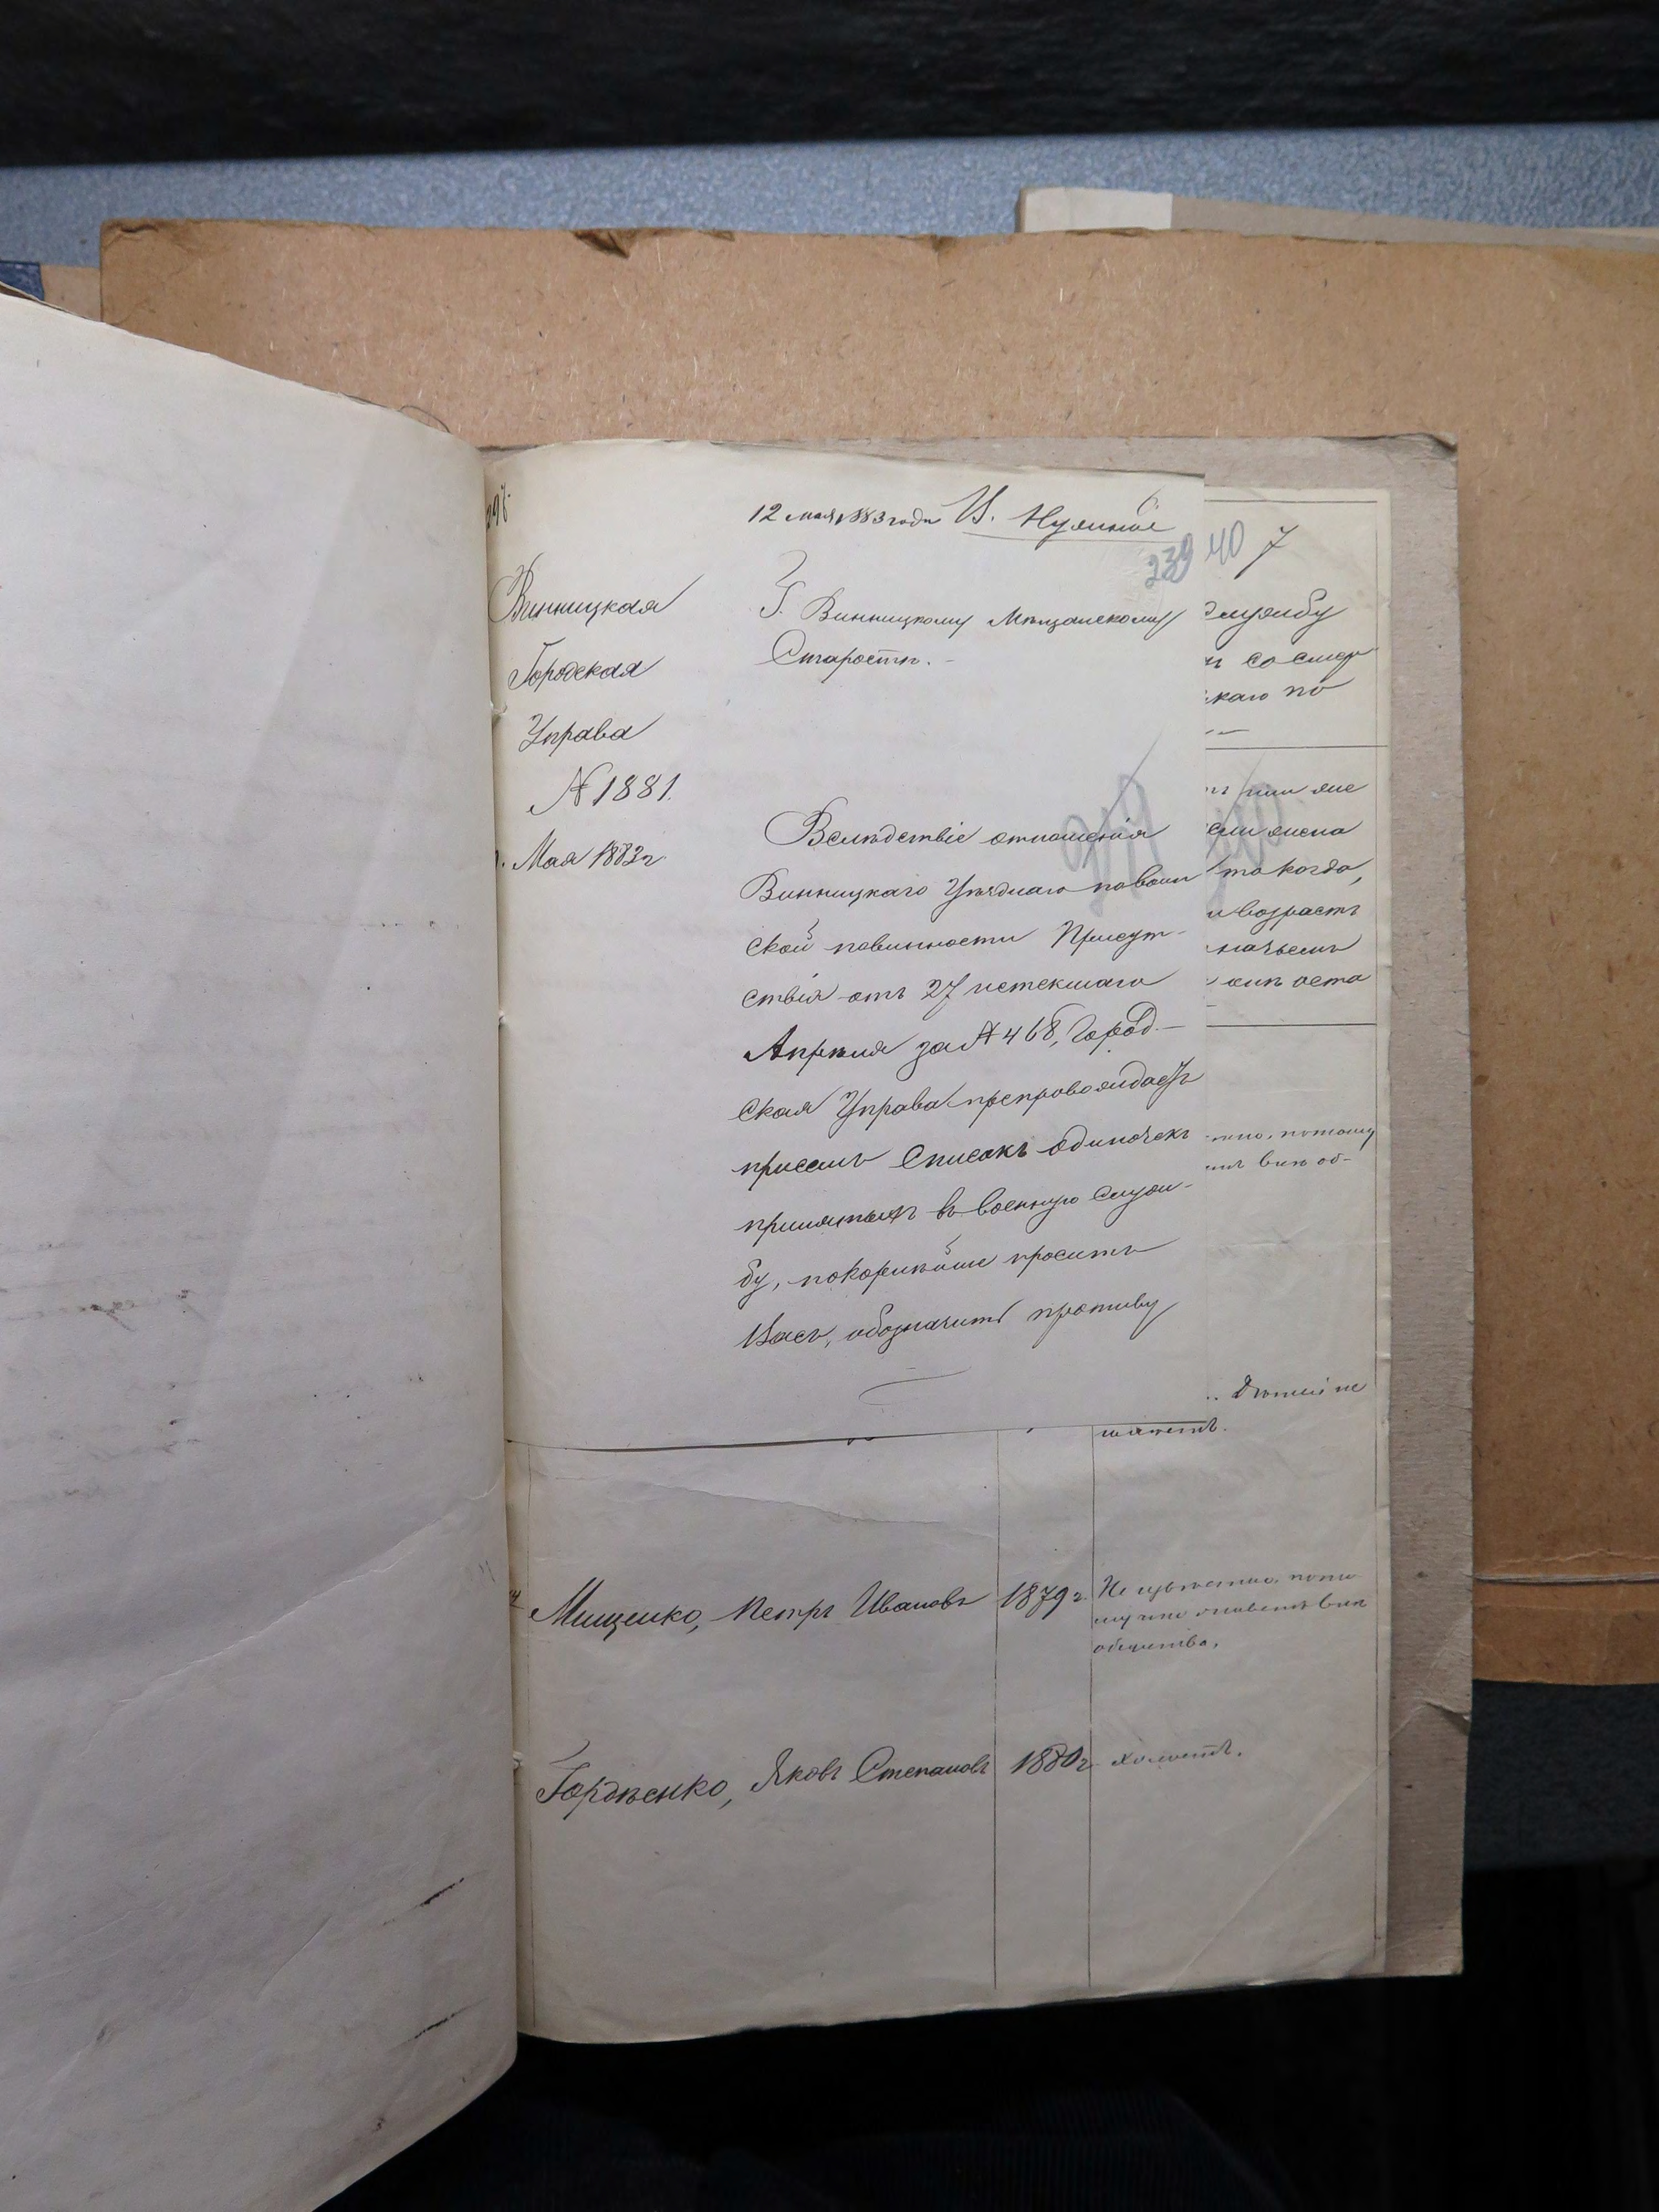 12 мая 1883 года В. Нужное
6
239 40 7
Винницкая
Городская
Управа
№ 1881.
Мая 1883 г.
Г. Винницкому Мѣщанскому
Старостѣ.
Вслѣдствіе отношенія
Винницкаго Уѣзднаго по воин
ской повинности Присут-
ствія отъ 27 истекшаго
Апрѣля за № 468, Город-
ская Управа препровождаетъ
присемъ списокъ одиночекъ
принятыхъ въ военную служ-
бу, покорнѣйше проситъ
Васъ, обозначить противу
службу
со смер
каго по
или же
если жена
то когда,
и возрастъ
на чьемъ
они оста
потому
внѣ об-
Дѣтей не
Мищенко, Петръ Ивановъ 1879 г. Не извѣстно, пото
му что живетъ внѣ
общества,
Гордѣенко, Яковъ Степановъ 1880 г. холостъ.